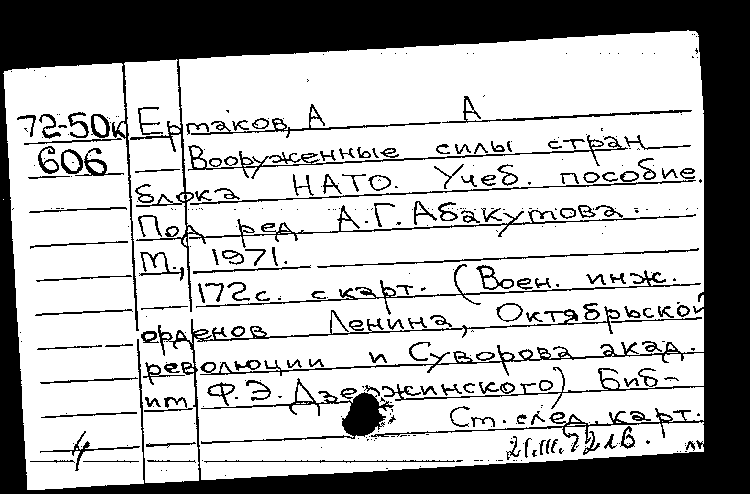 72-50к Ермаков, А А
606 Вооруженные силы стран
блока НАТО. Учеб. пособие.
Под ред. А.Г. Абакумова.
М., 1971.
172 с. с карт. (Воен. инж.
орденов Ленина, Октябрьской
революции и Суворова акад.
им. Ф.Э. Дзержинского) Биб-
Ст. след. карт.
4 21.III.72